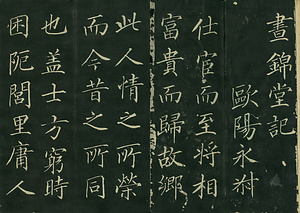 晝錦堂記
歐陽永叔
仕宦而至将相
富貴而歸故鄉
此人情之所榮
而今昔之所同
也盖士方窮時
困阨閭里庸人